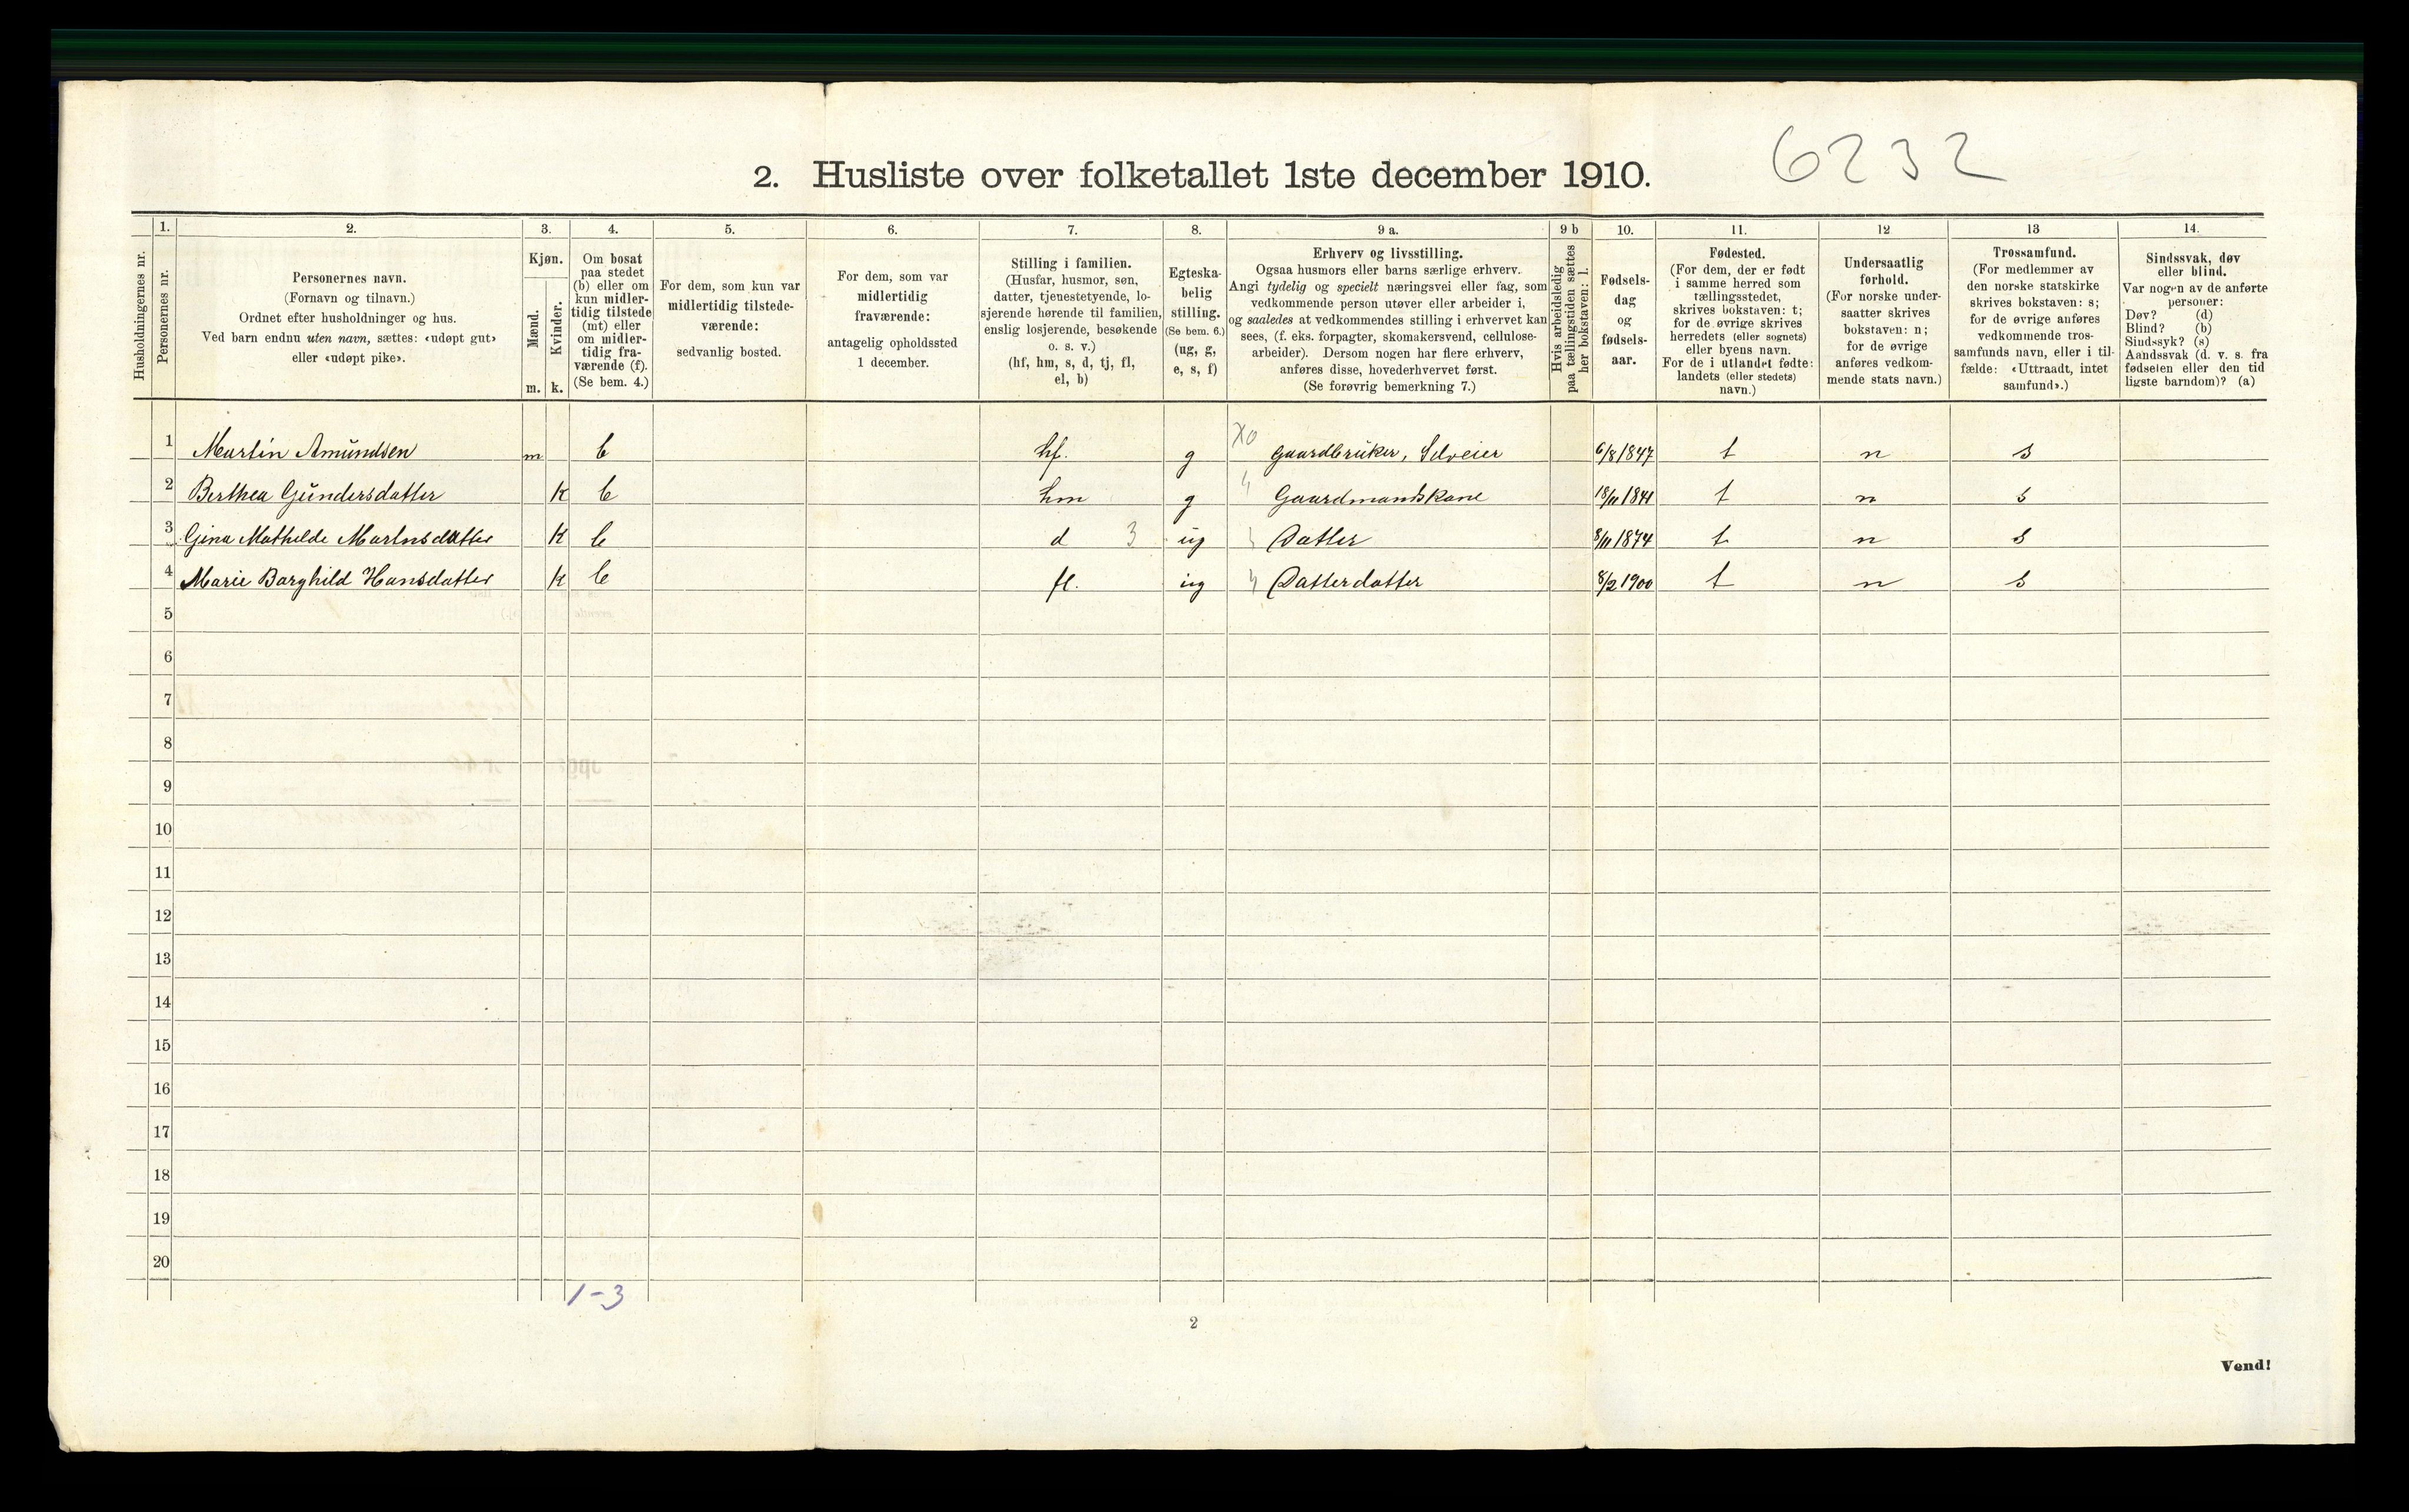 6232
2. Husliste over folketallet 1ste december 1910.
Husholdningernes nr.
1.
Personernes nr.
2.
Personernes navn.
(Fornavn og tilnavn.)
Ordnet efter husholdninger og hus.
Ved barn endnu uten navn, sættes: «udøpt gut»
eller «udøpt pike».
3.
Kjøn.
Mænd.
Kvinder.
m. k.
4.
Om bosat
paa stedet
(b) eller om
kun midler-
tidig tilstede
(mt) eller
om midler-
tidig fra-
værende (f).
(Se bem. 4.)
5.
For dem, som kun var
midlertidig tilstede-
værende:
sedvanlig bosted.
6.
For dem, som var
midlertidig
fraværende:
antagelig opholdssted
1 december.
7.
Stilling i familien.
(Husfar, husmor, søn,
datter, tjenestetyende, lo-
sjerende hørende til familien,
enslig losjerende, besøkende
o. s. v.)
(hf, hm, s, d, tj, fl,
el, b)
8.
Egteska-
belig
stilling.
(Se bem. 6.)
(ug, g,
e, s, f)
9 a.
Erhverv og livsstilling.
Ogsaa husmors eller barns særlige erhverv.
Angi tydelig og specielt næringsvei eller fag, som
vedkommende person utøver eller arbeider i,
og saaledes at vedkommendes stilling i erhvervet kan
sees, (f. eks. forpagter, skomakersvend, cellulose-
arbeider). Dersom nogen har flere erhverv,
anføres disse, hovederhvervet først.
(Se forøvrig bemerkning 7.)
9 b
Hvis arbeidsledig
paa tællingstiden sættes
her bokstaven: l.
10.
Fødsels-
dag
og
fødsels-
aar.
11.
Fødested.
(For dem, der er født
i samme herred som
tællingsstedet,
skrives bokstaven: t;
for de øvrige skrives
herredets (eller sognets)
eller byens navn.
For de i utlandet fødte:
landets (eller stedets)
navn.)
12
Undersaatlig
forhold.
(For norske under-
saatter skrives
bokstaven: n;
for de øvrige
anføres vedkom-
mende stats navn.)
13
Trossamfund.
(For medlemmer av
den norske statskirke
skrives bokstaven: s;
for de øvrige anføres
vedkommende tros-
samfunds navn, eller i til-
fælde: «Uttraadt, intet
samfund».)
14.
Sindssvak, døv
eller blind.
Var nogen av de anførte
personer:
Døv? (d)
Blind? (b)
Sindssyk? (s)
Aandssvak (d. v. s. fra
fødselen eller den tid
ligste barndom)? (a)
1 Martin Amundsen m b hf. g X0 Gaardbruker, Selveier 6/8 1847 t n s
2 Berthea Gundersdatter K b hm g Gaardmandskone 18/11 1841 t n s
3 Gina Mathilde Martnsdatter K b d 3 ug Datter 8/11 1874 t n s
4 Marie Borghild Hansdatter k b fl. ug Datterdatter 8/2 1900 t n s
5
6
7
8
9
10
11
12
13
14
15
16
17
18
19
20
1-3
2
Vend!